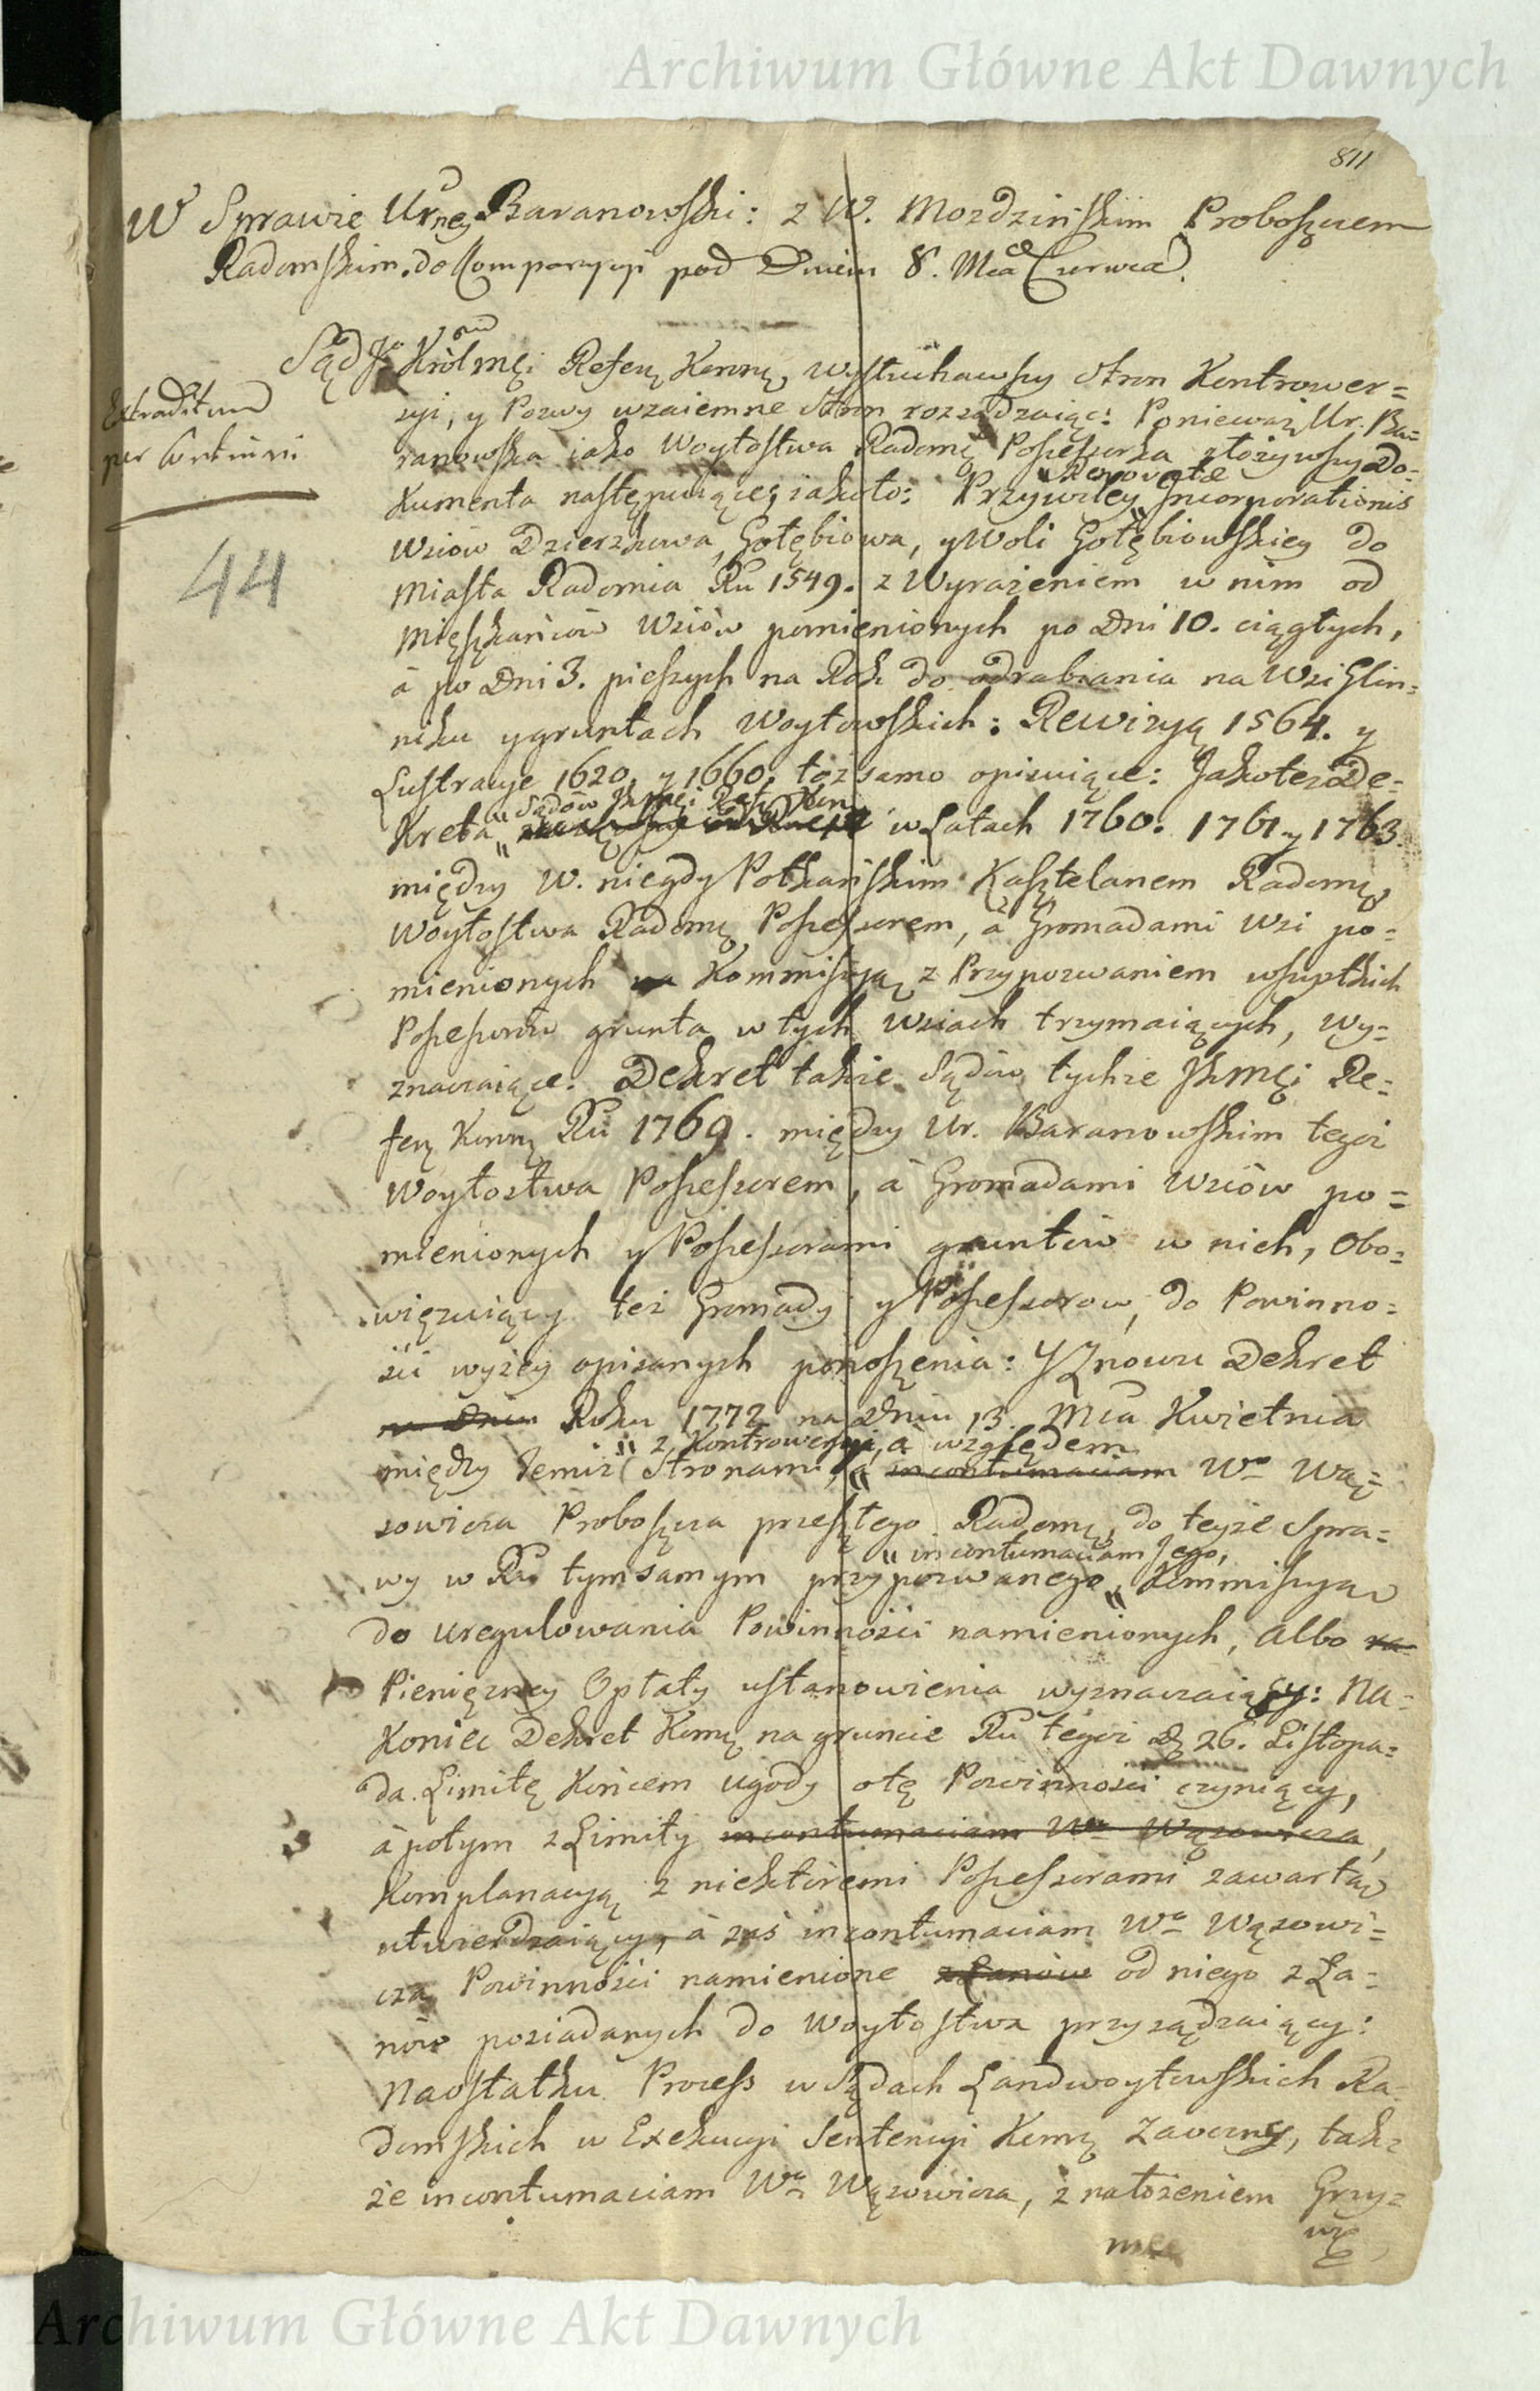 Archiwum Główne Akt Dawnych
811
W Sprawie Urney Baranowski: z W. Mozdzińskim Proboszczem
Radomskim. do Komparycyi pod Dniem 8. Mca Czerwca.
Sąd Jo Królmći Referẓ Koronnẓ, wysłuchawszy Stron Kontrower=
syi, y Pozwy wzaiemne Stron rozsądzaiąc: Ponieważ Ur. Ba=
ranowska iako Woytostwa Radomẓ Possessorka złożywszy Do=
Extraditum
per
kumenta następuiące, iakoto: Przywiley „Renovatæ Incorporationis
Wsiów Dzierzkowa, Gołębiowa, y Woli Gołębiowskiey do
44
Miasta Radomia Ru 1549. z Wyrażeniem w nim od
Mięszkańców Wsiów pomienionych po Dni 10. ciągłych,
à po Dni 3. pieszych na Rok do odrabiania na Wsi Glin=
niku y gruntach Woytowskich: Rewizyą 1564. y
Lustracye 1620. y 1660. toż samo opisuiące: Jakoteż De=
kreta „Sądów Jkrmći Refẓ Korẓ w Latach 1760. 1761 y 1763.
między W. niegdy Potkańskim Kasztelanem Radomẓ,
Woytostwa Radomẓ Possessorem, à Gromadami Wsi po=
mienionych Kommissyą z Przypozwaniem wszystkich
Possessorów grunta w tych Wsiach trzymaiących, wy=
znaczaiące. Dekret także Sądów tychże Jkmći Re=
ferẓ Koronẓ Ru 1769. między Ur. Baranowskim tegoż
Woytostwa Possessorem, à Gromadami Wsiów po=
mienionych y Possessorami gruntów w nich, obo=
więzuiący też Gromady y Possessorow, do Powinno=
ści wyżey opisanych ponoszenia: Y Znowu Dekret
Roku 1772 na Dniu 13. Mca Kwietnia
między temiż Stronami, „z Kontrowersyi, à względem Wo Wą=
sowicza Proboszcza przeszłego Radomẓ, do teyże Spra=
wy w Ru tym samym przypozwanego, „in contumaciam Jego, Kommissyą
do uregulowania Powinności namienionych, albo
Pieniężney Opłaty ustanowienia wyznaczaiący: Na=
koniec Dekret Komẓ na gruncie Ru tegoż D 26. Listopa=
da. Limitę końcem ugody otę Powinności czyniący,
à potym z Limity in contumaciam Wo Wązowicza,
Komplanacyą z niektóremi Possessorami zawartą
utwierdzaiący, à zaś in contumaciam Wo Wązowi=
cza Powinności namienione z Łanów od niego z Ła=
nów posiadanych do Woytostwa przysądzaiący:
Naostatku Process w Sądach Landwoytowskich Ra=
domskich w Exekucyi Sentencyi Komẓ Zaoczny, tak=
że in contumaciam Wo Wązowicza, z nałożeniem Grzy=
wẓ
Archiwum Główne Akt Dawnych